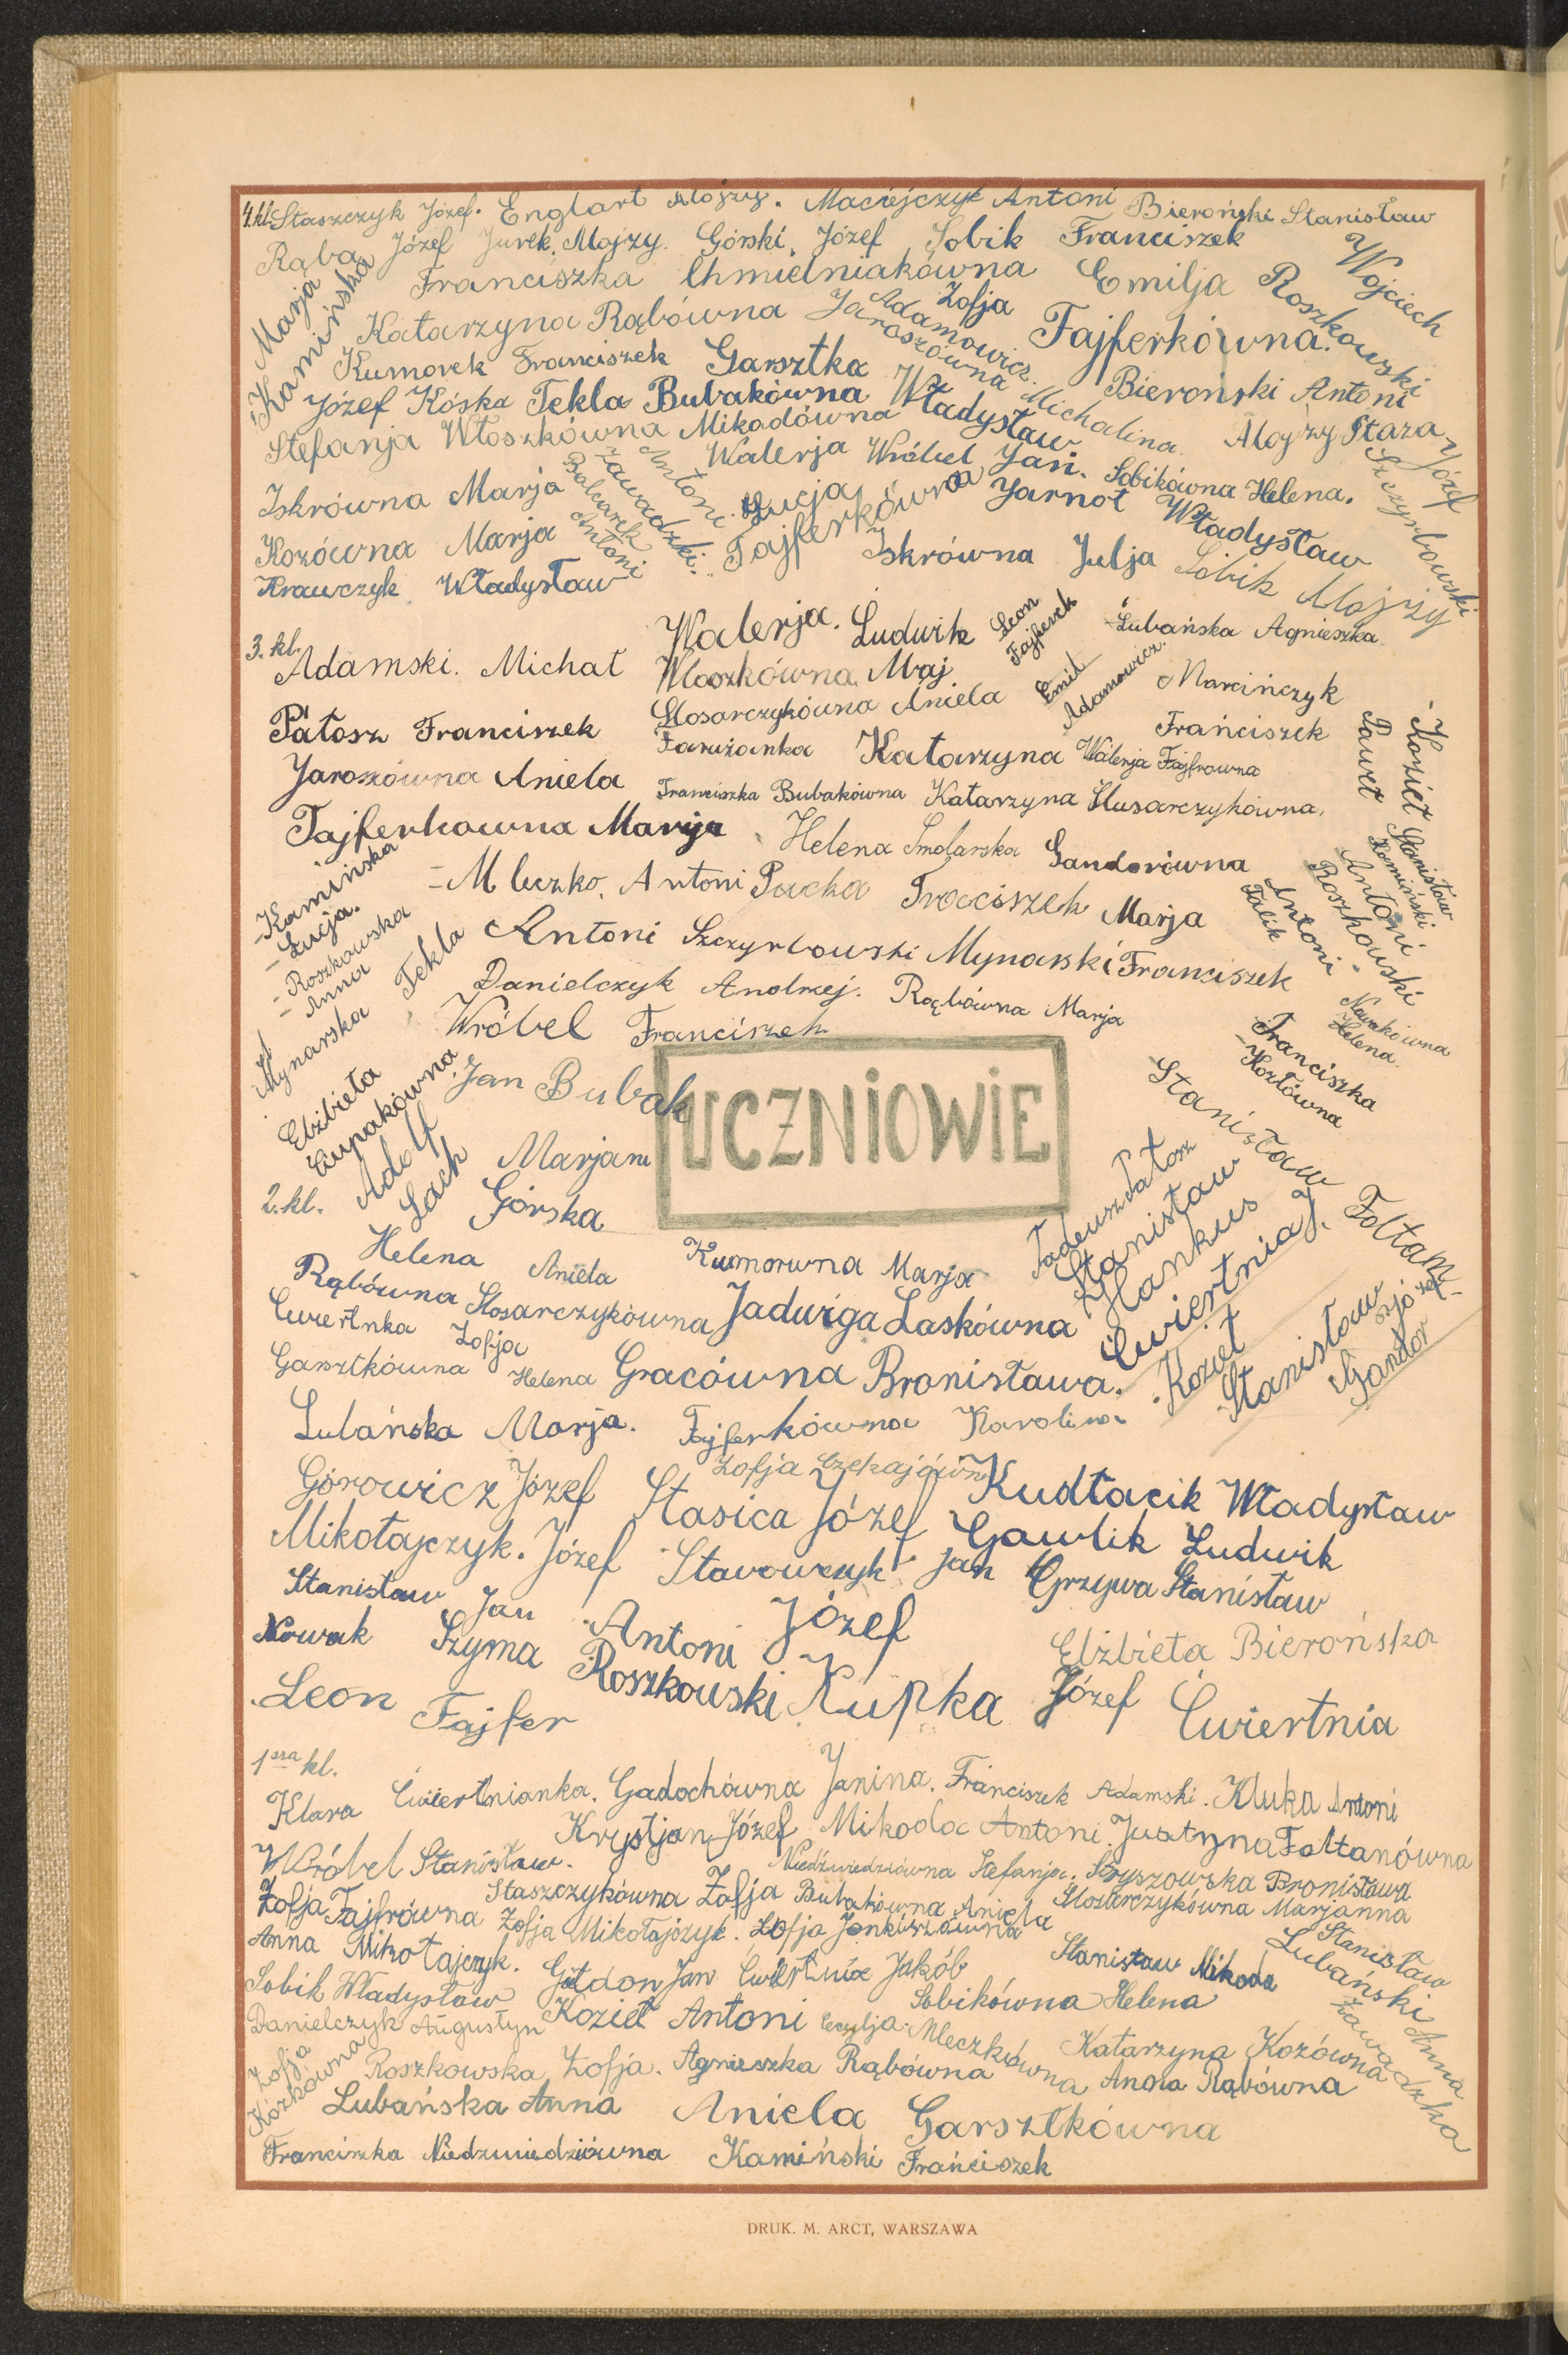 4. kl. Staszczyk Józef. Englart Alojzy. Maciejczyk Antoni Bieroński Stanisław
Rąba Józef Jurek Alojzy. Górski Józef Sobik Franciszek
Marja Kamińska
Franciszka Chmielniakówna Emilja
Wojciech Roszkowski
Katarzyna Rąbówna Jaroszówna Michalina
Zofja Fajferkówna.
Adamowicz
Kumorek Franciszek Garsztka Władysław
Bieroński Antoni
Józef Kóska Tekla Bubakówna
Stefanja Włoszkówna Mikodówna Walerja
Alojzy Staza
Józef Szczyrbowski
Wróbel Jan. Sobikówna Helena.
Iskrówna Marja
Balcarek Antoni
Zawadzki Antoni
Łucja Fajferkówna
Jarnot Władysław
Kozówna Marja
Iskrówna Julja Sobik Alojzy
Krawczyk Władysław
3. kl.
Adamski. Michał
Walerja. Włoszkówna
Ludwik Maj
Leon Fajferek
Lubańska Agnieszka
Emil Adamowicz.
Marcińczyk Franciszek
Pałosz Franciszek
Slosarczykówna Aniela
Katarzyna Walerja Fajfrowna
Kozieł Paweł
Jaroszówna Aniela
Franciszka Bubakówna Katarzyna Slusarczykówna,
Fajferkowna Marja Helena Smolarska Gandorówna Marja
Stanisław Kamiński
Antoni Roszkowski
Antoni Falik
Kamińska Łucja.
Mleczko. Antoni Pacha Franciszek
Roszkowska Anna
Antoni Szczyrbowski Mynarski Franciszek
Mynarska Tekla
Danielczyk Andrzej. Rąbówna Marja
Nowakówna Helena.
Wróbel Franciszek
Franciszka Kozłówna
Elżbieta Cupakówna
Jan Bubak
UCZNIOWIE
Stanisław Foltam
2. kl.
Adolf Lach
Marjam Górska
Tadeusz Pałosz
Stanisław Hankus
Helena Rąbówna
Aniela Slosarczykówna
Kumorwna Marja
Ćwiertnia J.
Jadwiga Laskówna
Cwiertnka Zofja
Kozieł Stanisław
Józef Gandor
Garsztkówna Helena Gracówna Bronisława.
Lubańska Marja. Fajferkówna Karolina
Zofja Czekajówn
Górowicz Józef Stasica Józef Kudłacik Władysław
Mikołajczyk. Józef Stawowczyk Jan Gawlik Ludwik
Grzywa Stanisław
Stanisław Nowak
Jan Szyma
Antoni Roszkowski
Józef Kupka
Elżbieta Bierońska
Leon Fajfer
Józef Ćwiertnia
1sza kl.
Klara Ćwiertnianka. Gadochówna Janina. Franciszek Adamski. Kluka Antoni
Krystjan Józef Mikoda Antoni. Justyna Foltanówna
Wróbel Stanisław.
Niedźwiedziówna Stefanja. Stryszowska Bronisława
Zofja Fajfrówna Staszczykówna Zofja Bubakówna Aniela Slosarczykówna Marjanna
Zofja Mikołajczyk. Zofja Jonkiszówna
Anna Mikołajczyk.
Stanisław Mikoda
Stanisław Lubański
Sobik Władysław Gałdon Jan Ćwiertnia Jakób
Sobikówna Helena
Danielczyk Augustyn Kozieł Antoni Cecylja Mleczkówna
Katarzyna Kozówna
Anna Zawadzka
Zofja Kozkówna
Roszkowska Zofja. Agnieszka Rąbówna Anna Rąbówna
Lubańska Anna Aniela Garsztkówna
Franciszka Niedzwiedziówna Kamiński Franciszek
DRUK. M. ARCT, WARSZAWA